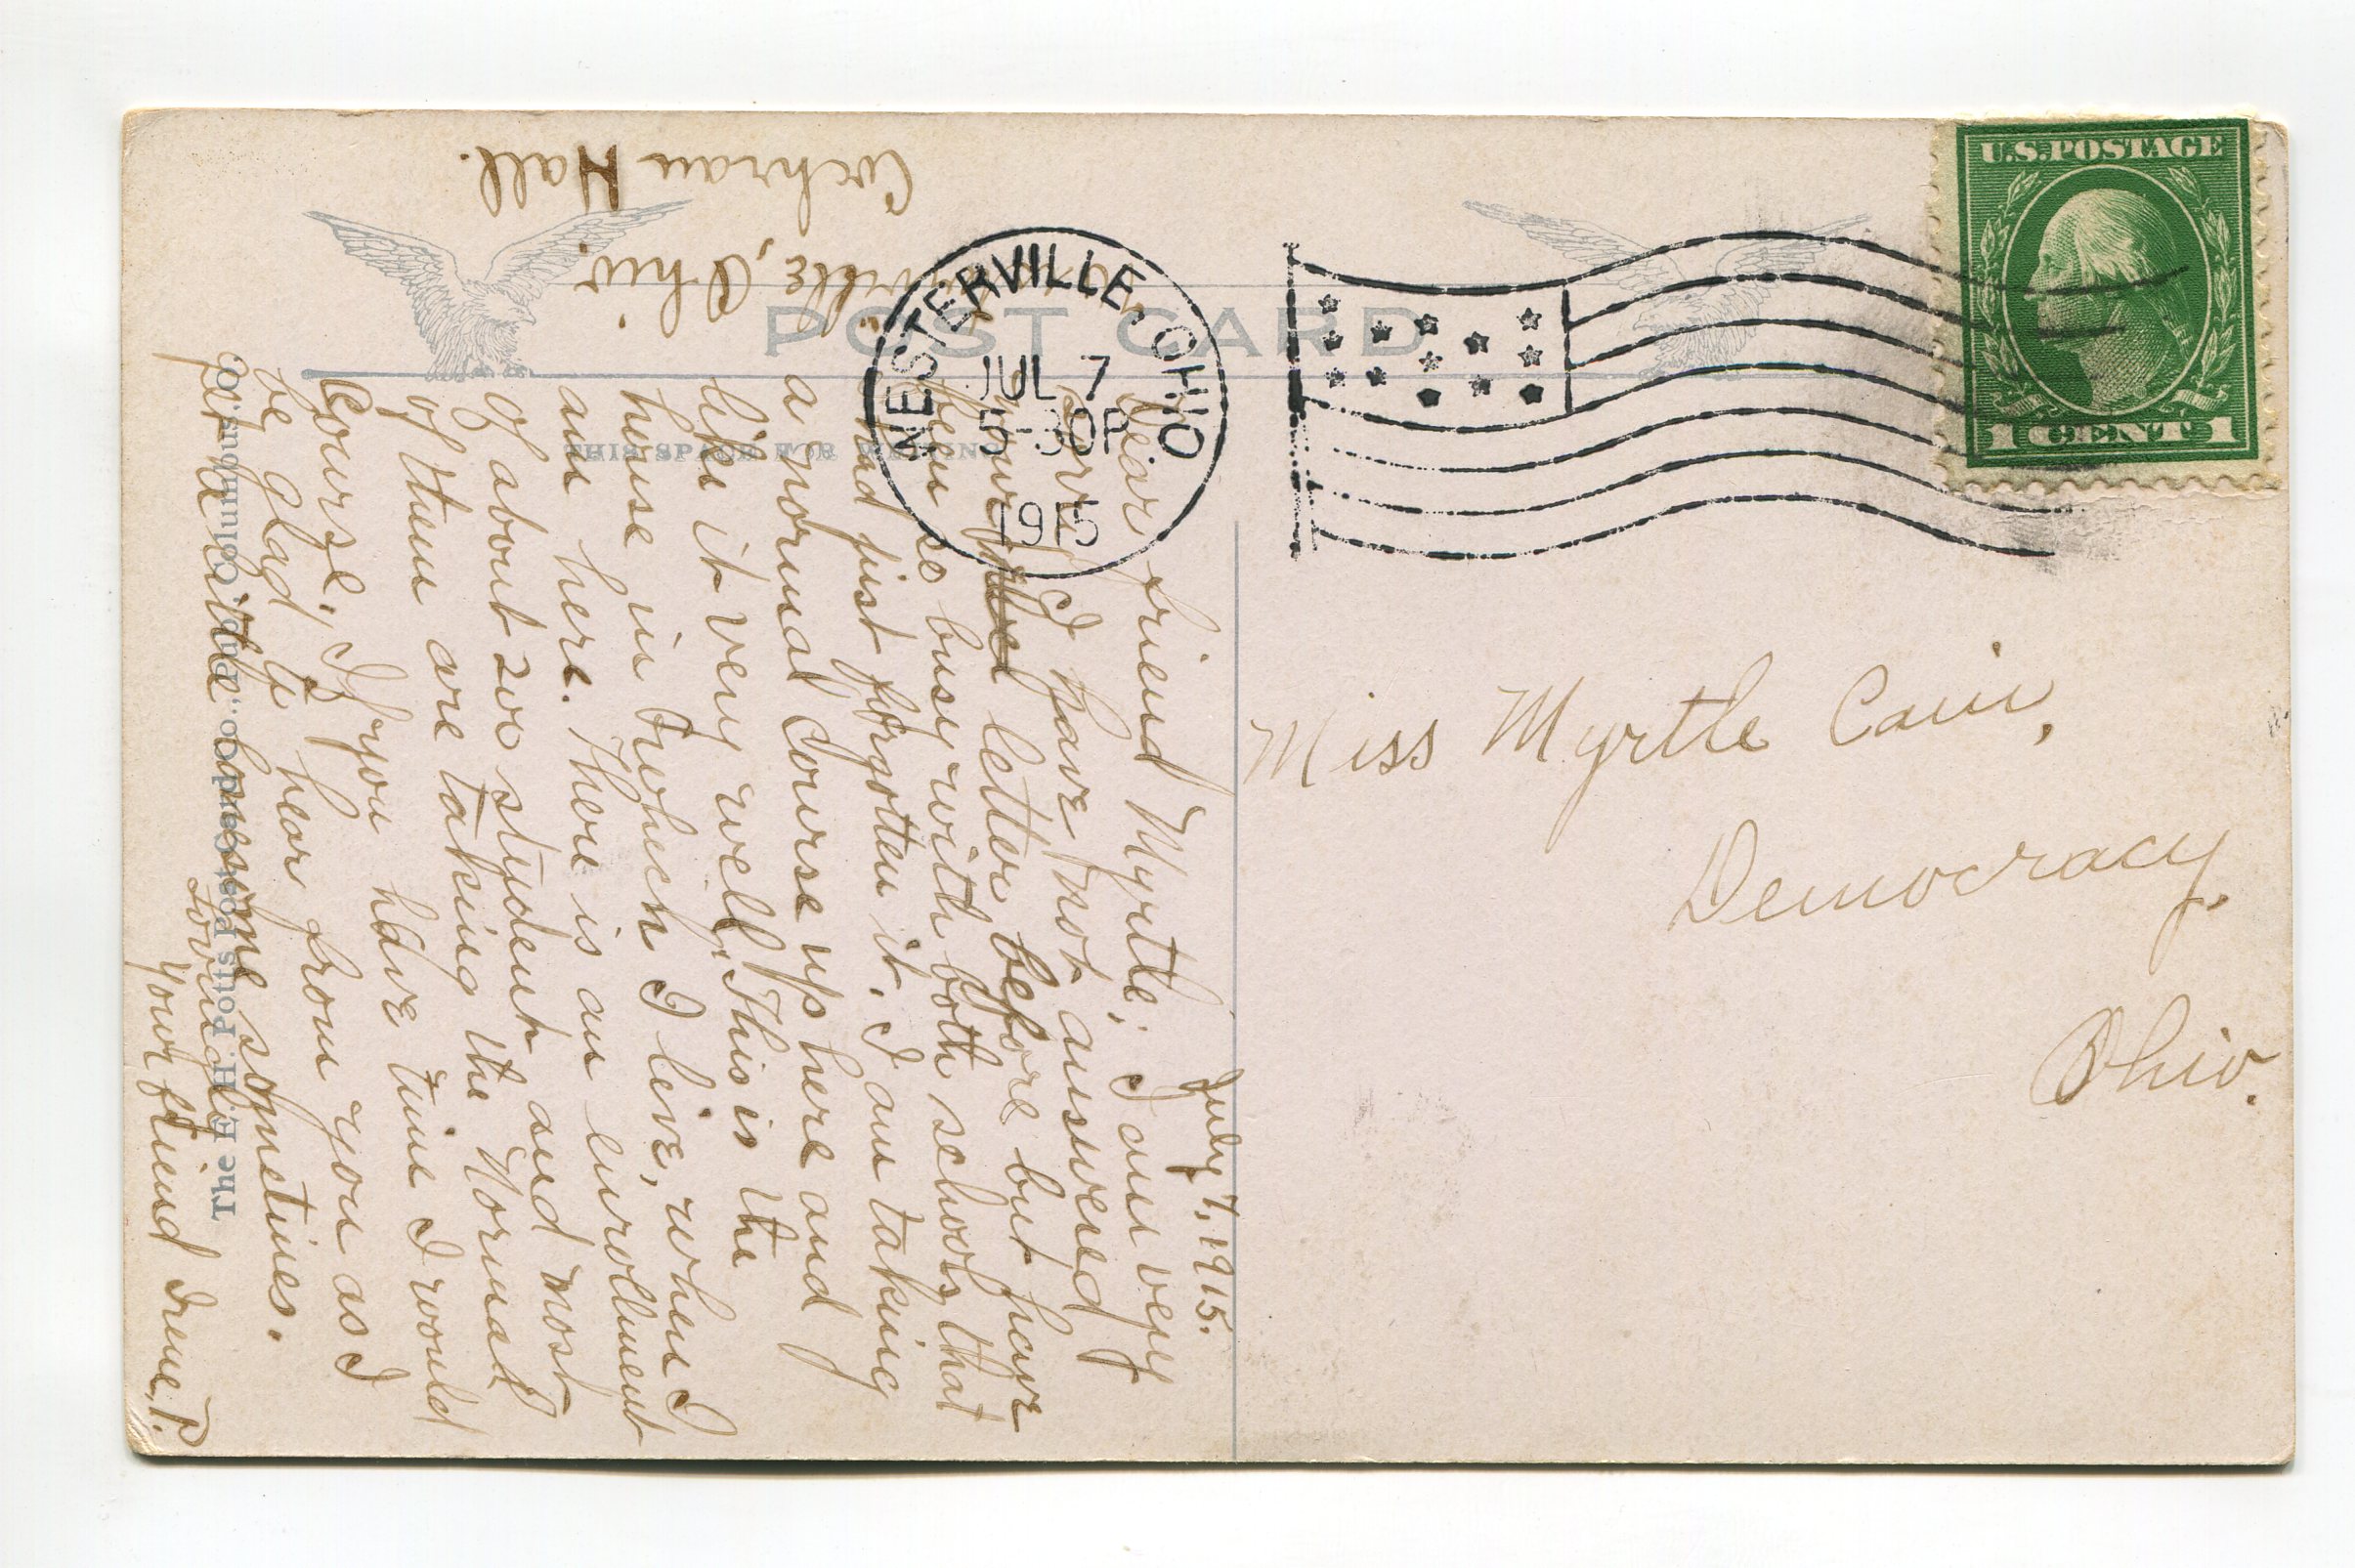 U.S. POSTAGE
1 CENT 1
WESTERVILLE, OHIO
JUL 7
5-30P.
1915
POST CARD
THIS SPACE FOR WRITING
Miss Myrtle Cain,
Democracy,
Ohio.
Cochran Hall.
Westerville, Ohio.
July 7, 1915.
Dear friend Myrtle; I am very
sorry I have not answered
your letter before but have
been so busy with both schools that
had just forgotten it. I am taking
a Normal Course up here and
like it very well. This is the
house in which I live, when I
am here. There is an enrollment
of about 200 student and most
of them are taking the Normal
Course. If you have time I would
be glad to hear from you as I
get a little lonesome sometimes.
Lovingly
Your friend Irene. P.
The E. H. Potts Post Card Co., Pub., Columbus, O.